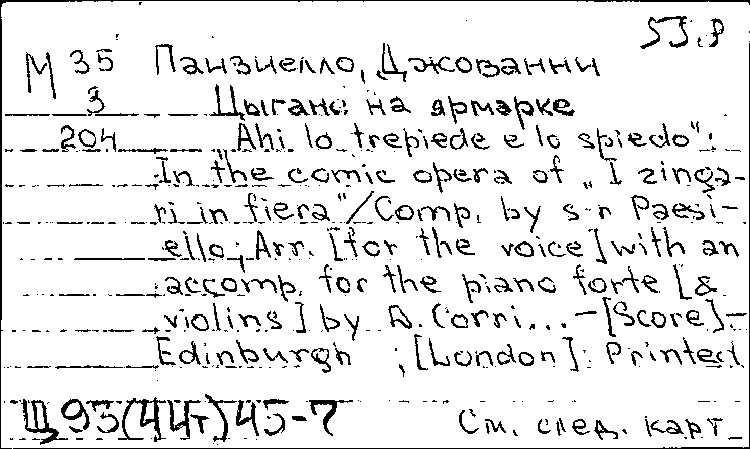 53.8
М 35 Паизиелло, Джованни
3 Цыгане на ярмарке
204 „Ahi lo trepiede e lo spiedo":
In the comic opera of „I zinga-
ri in fiera"/Comp. by s-r Paesi-
ello; Arr. [for the voice] with an
accomp. for the piano forte [&
violins] by D. Corri... – [Score]. –
Edinburgh ; [London]: Printed
Щ93(44т)45-7 См. след. карт.